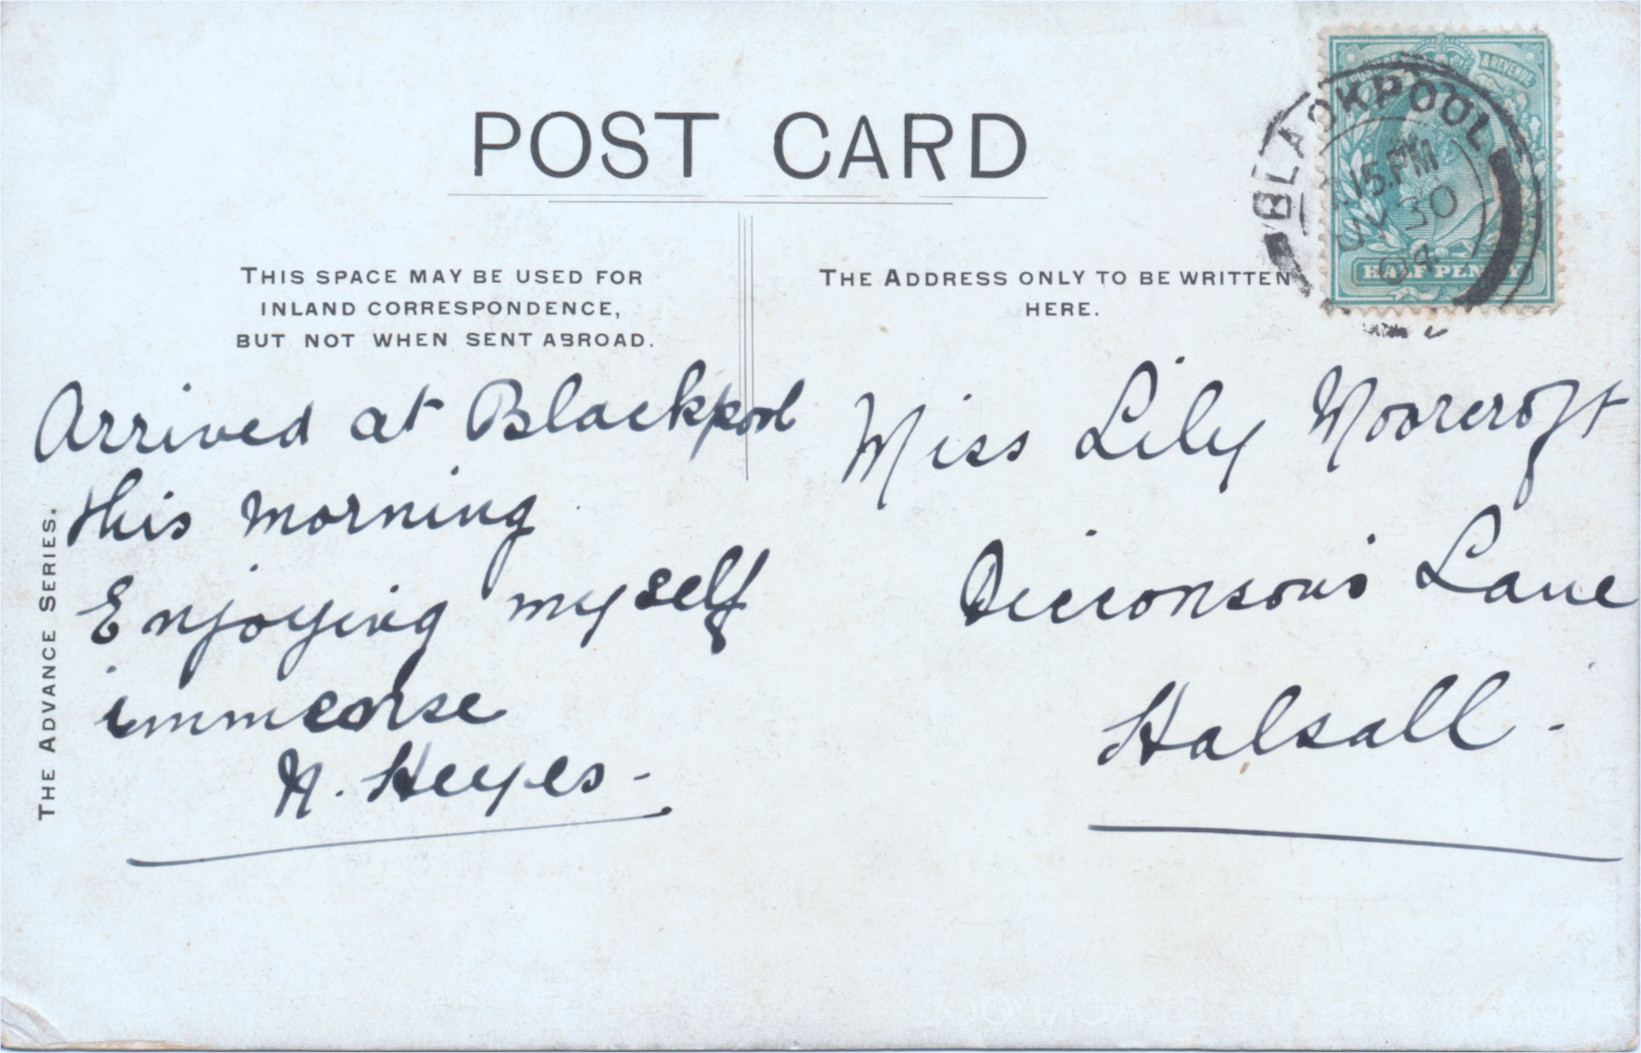 POST CARD
THIS SPACE MAY BE USED FOR
INLAND CORRESPONDENCE,
BUT NOT WHEN SENT ABROAD.
THE ADDRESS ONLY TO BE WRITTEN
HERE.
& REVENUE
HALFPENNY
BLACKPOOL
15.PM
JY 30
04
Arrived at Blackpool
this morning
Enjoying myself
immense
N. Heyes -
Miss Lily Moorcroft
Dicconson's Lane
Halsall -
THE ADVANCE SERIES.